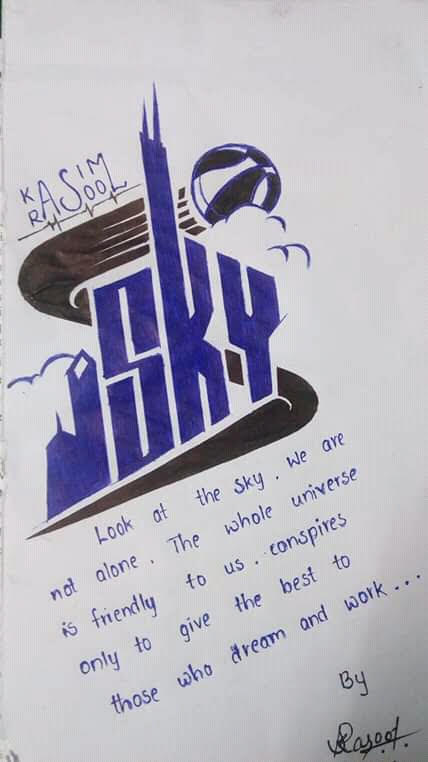 KASIM
RASOOL
SKY
Look at the sky. We are
not alone. The whole universe
is friendly to us. conspires
only to give the best to
those who dream and work...
By
Rasool.